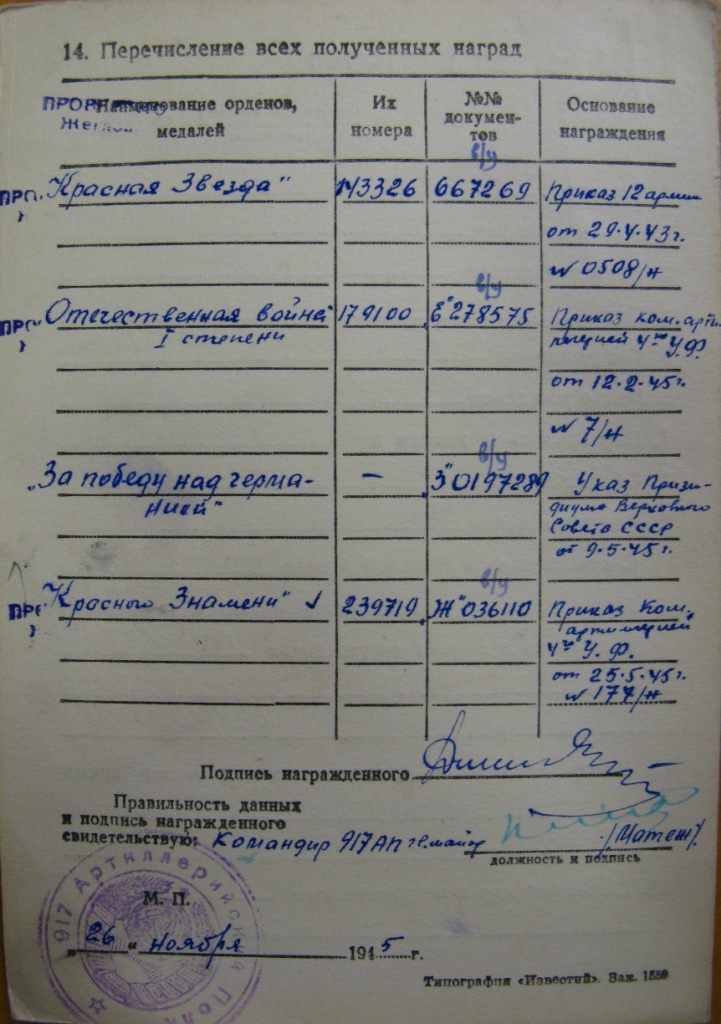 14. Перечисление всех полученных наград
Наименование орденов, медалей
Их номера
№№ документов
Основание награждения
в/у
"Красная Звезда" 143326 667269 Приказ 12 армии
от 29.4.43г.
№ 0508/н
в/у
Отечественная война 179100 „Е" 278575 Приказ ком. арти-
I степени ллерией 4го У.Ф.
от 12.2.45г.
№ 7/н
в/у
„За победу над Герма- — „З" 0197289 Указ Прези-
нией" диума Верховного
Совета СССР
от 9.5.45г.
в/у
"Красного Знамени" 239719 „Ж" 036110 Приказ Ком.
артиллерией
4го У.Ф.
от 25.5.45г.
№ 177/н
Подпись награжденного
Правильность данных
и подпись награжденного
свидетельствую: Командир 917 АП /Матеж/
должность и подпись
917 Артиллерийский Полк
М. П.
„26" ноября 1945 г.
Типография «Известий». Зак. 1559